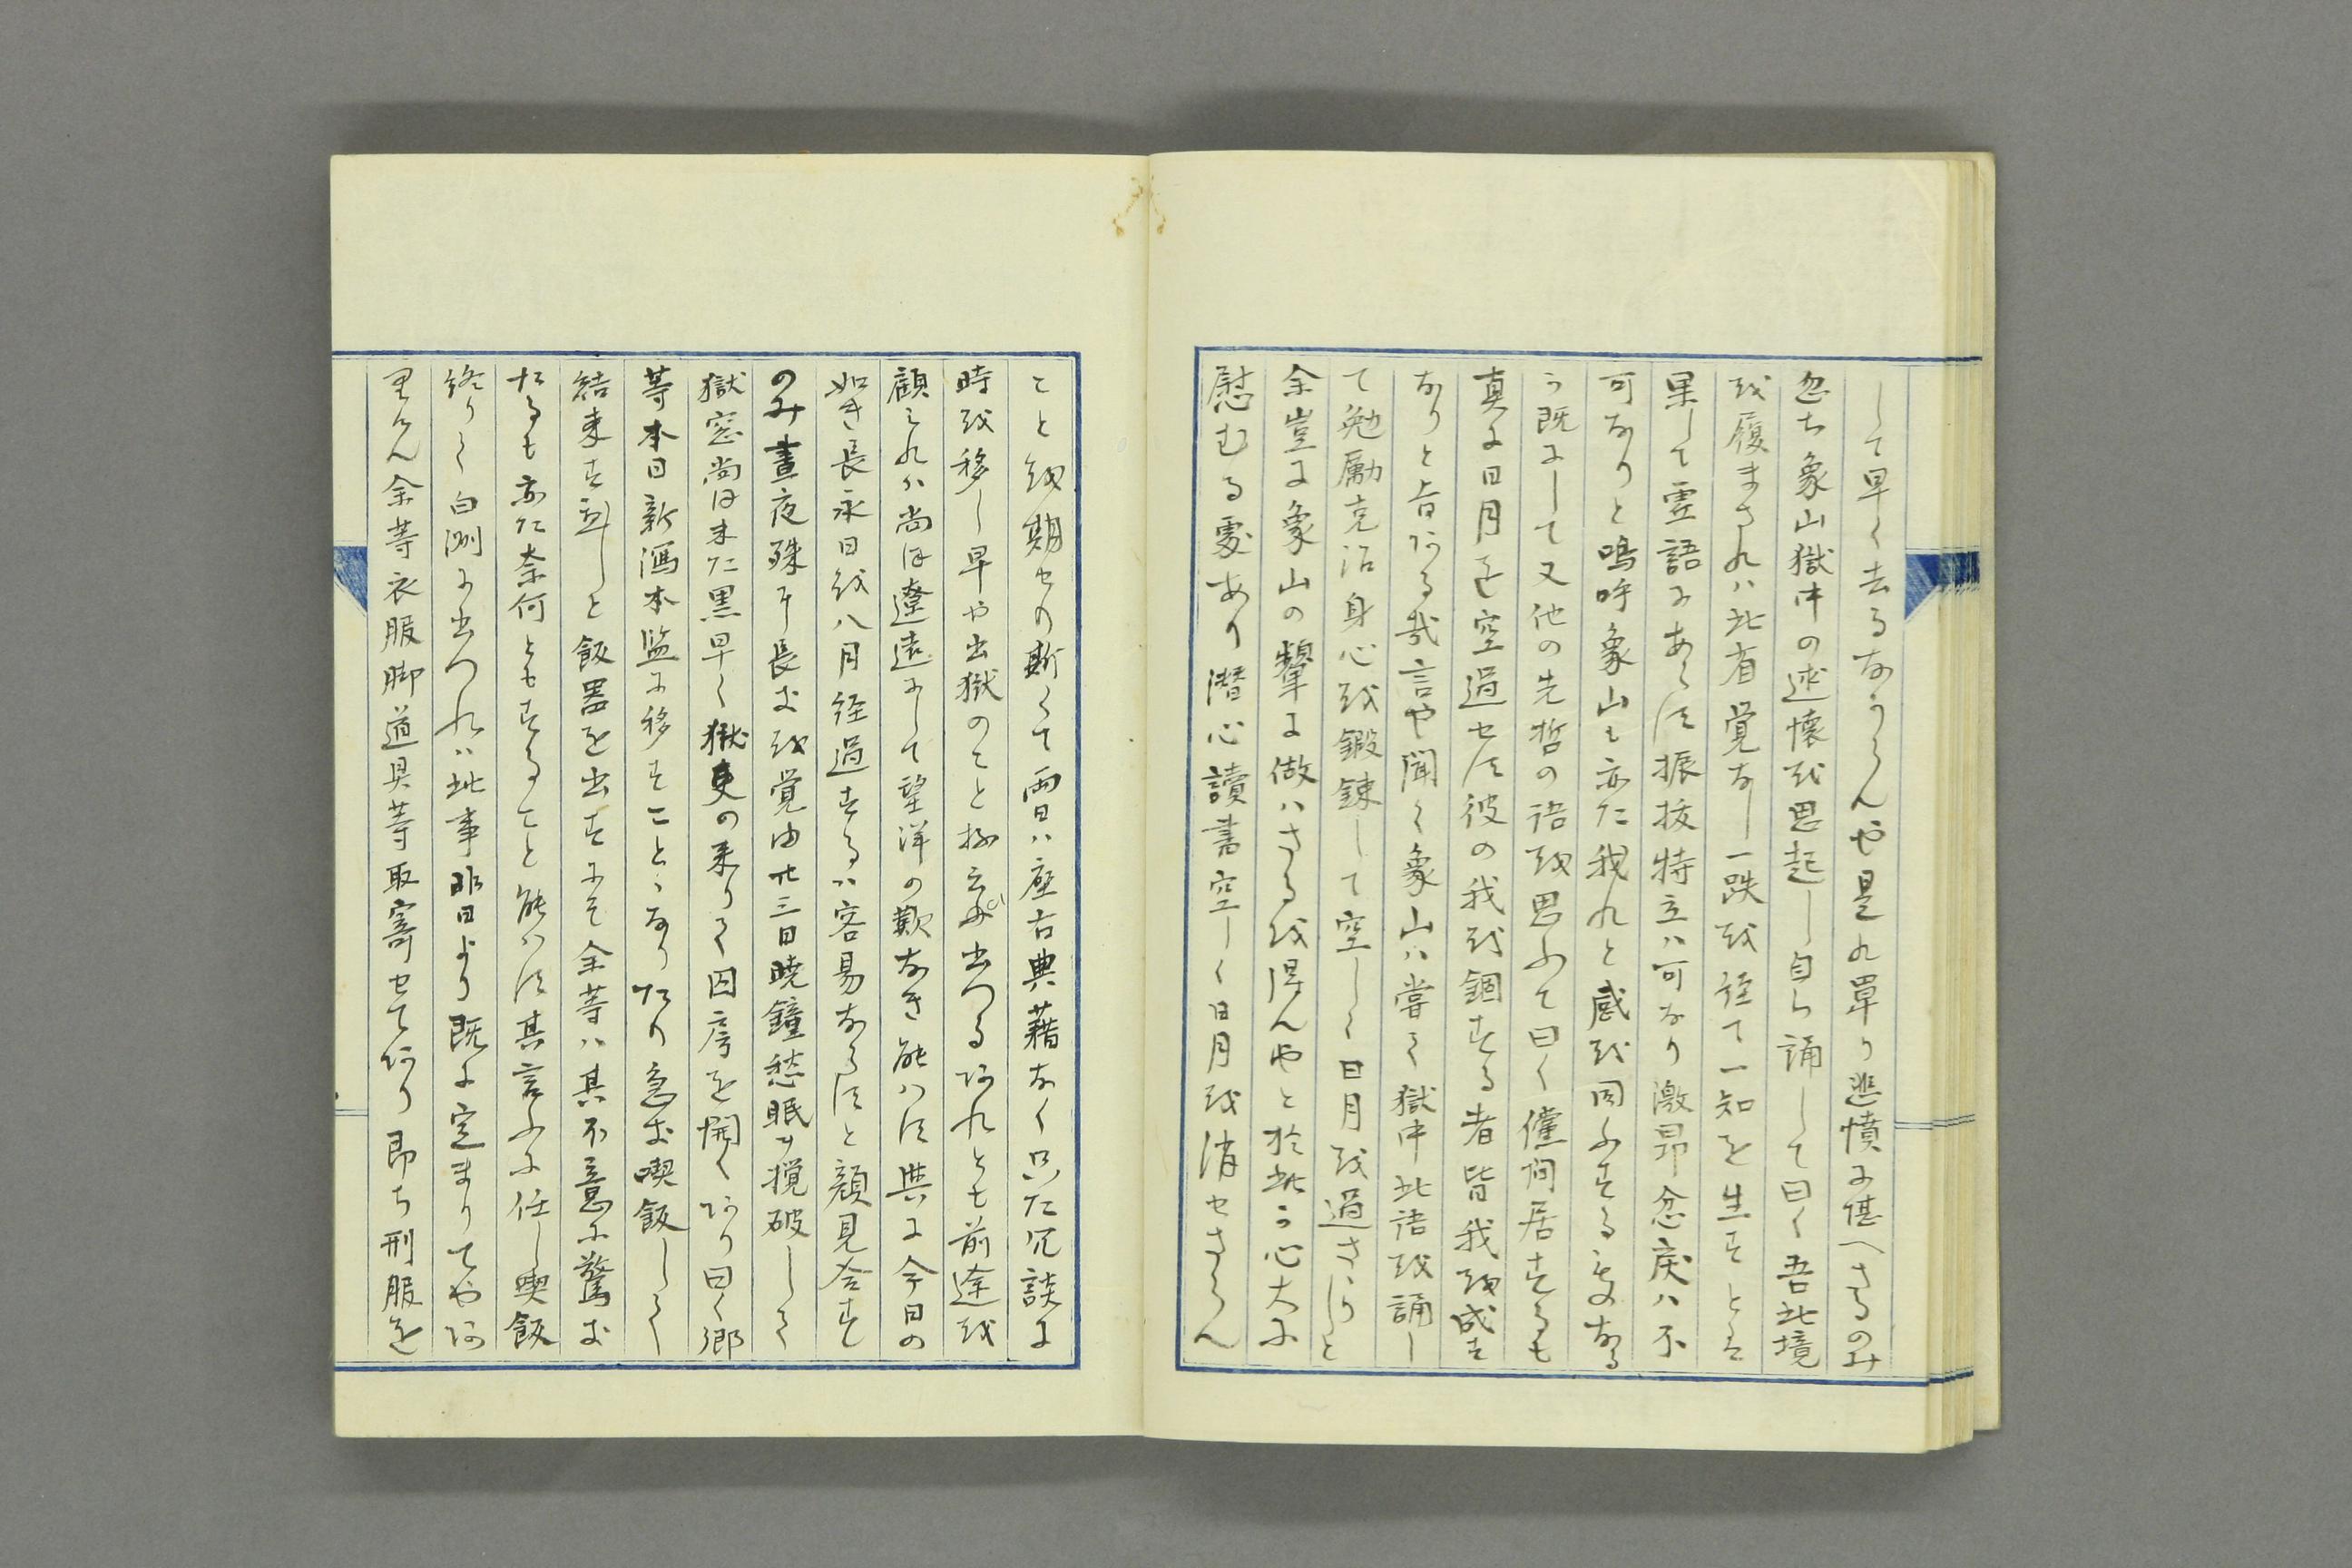 して早く去るなからんや是れ罩り悲憤に堪へさるのみ
忽ち象山獄中の述懐を思起し自ら誦して曰く吾此境
を履まされハ此省覚なし一跌を経て一知を生すとは
果して霊語にあらす振抜特立ハ可なり激昂忿戻ハ不
可なりと嗚呼象山も亦た我れと感を同ふする事なる
う既にして又他の先哲の語を思ふて曰く僅間居するも
真に日月を空過せす彼の我を錮する者皆我を成す
なりと旨ある哉言や聞く象山ハ嘗て獄中此語を誦し
て勉励克治身心を鍛錬して空しく日月を過さゝりしと
余豈に象山の顰に倣ハさるを得んやと於此う心大に
慰むる処あり潜心読書空しく日月を消せさらん
ことを期せり斯くて両日ハ座右典籍なく只た冗談に
時を移し早や出獄のこと抔云ひ出つるあれとも前途を
顧みれハ尚ほ遼遠にして望洋の歎なき能ハす典に今日の
如き長永日を八月経過するハ容易ならすと顔見合す
のみ昼夜殊に長きを覚ゆ廿三日暁鐘愁眠を攪破して
獄窓尚ほ未た黒早く獄吏の来りて囚房を開くあり曰く郷
等本日新潟本監に移すことゝなりたり急き喫飯して
結束す可しと飯器を出すにそ余等ハ其不意に驚き
たるも亦た奈何ともすること能ハす其言ふに任し喫飯
終りて白洲に出つれハ此事昨日より既に定まりてやあ
りけん余等衣服脚道具等取寄せてあり即ち刑服を